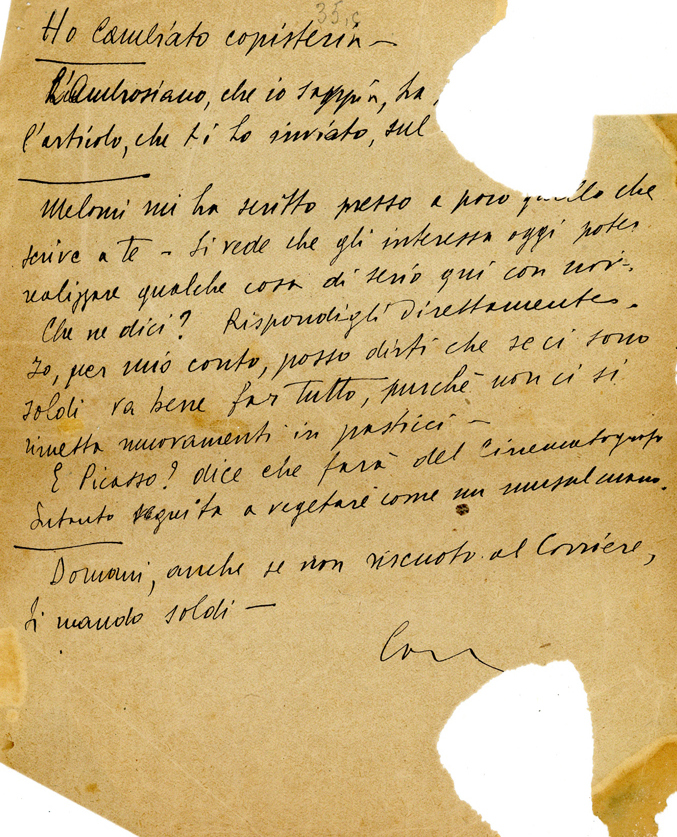 35,
Ho Cambiato copisteria —
L'Ambrosiano, che io sappia, ha
l'articolo, che ti ho inviato, sul
Meloni mi ha scritto presso a poco quello che
scrive a te — Si vede che gli interessa oggi poter
realizzare qualche cosa di serio qui con noi —.
Che ne dici? Rispondigli Direttamente.
Io, per mio conto, posso dirti che se ci sono
soldi va bene far Tutto, purchè non ci si
rimetta nuovamenti in pasticci —
E Picasso? dice che farà del Cinematografo
Intanto seguita a vegetare come un musulmano.
Domani, anche se non riscuoto al Corriere,
Ti mando soldi —